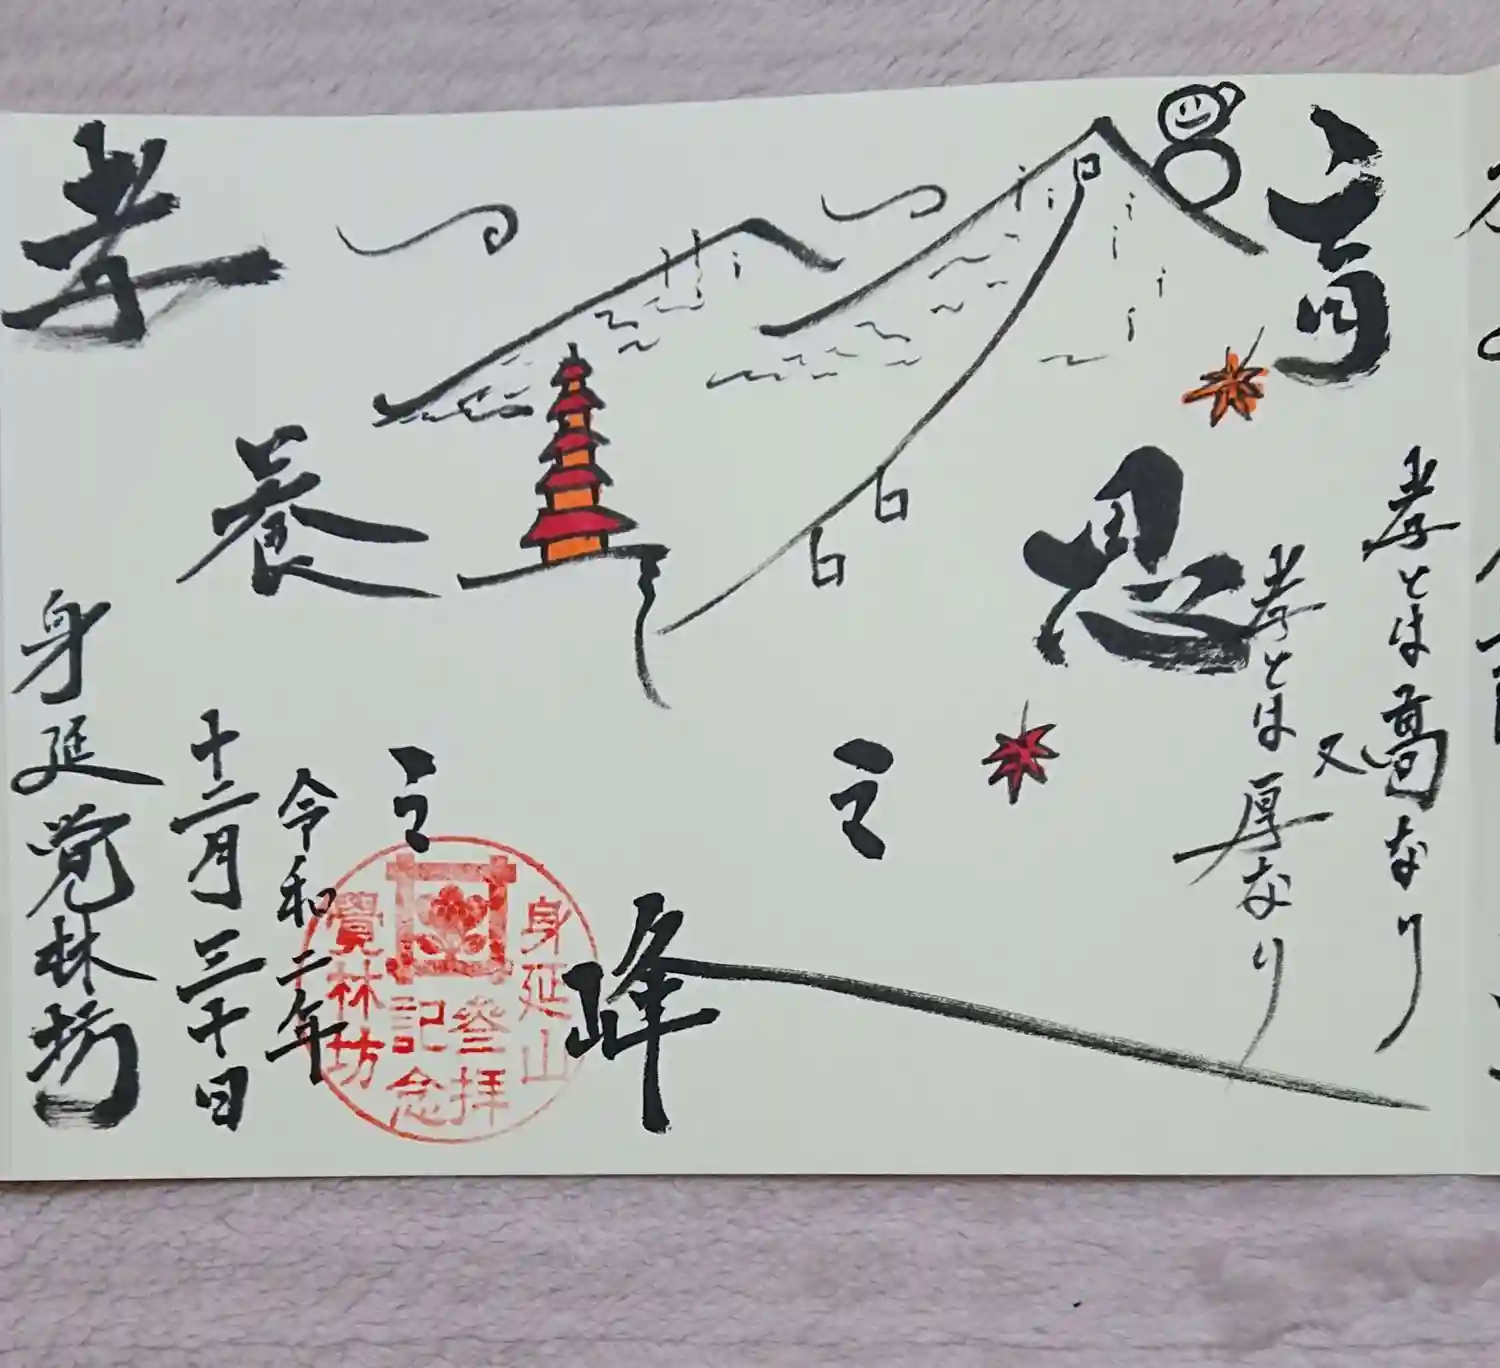 孝とは高なり
又
孝とは厚なり
育
恩
之
峰
孝
養
之
令和二年
十二月三十日
身延覚林坊
身延山
参拝
記念
覺林坊